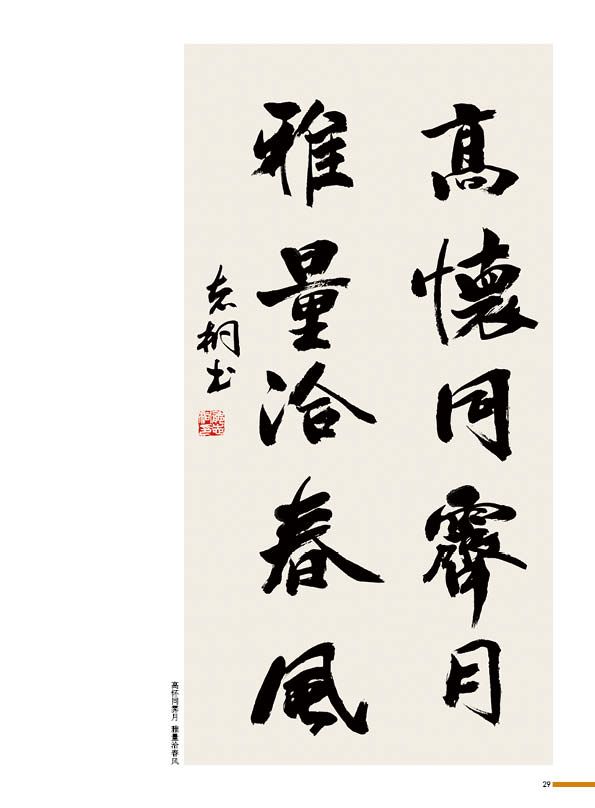 高懷同霽月
雅量洽春风
志桐书
高怀同霁月 雅量洽春风
29